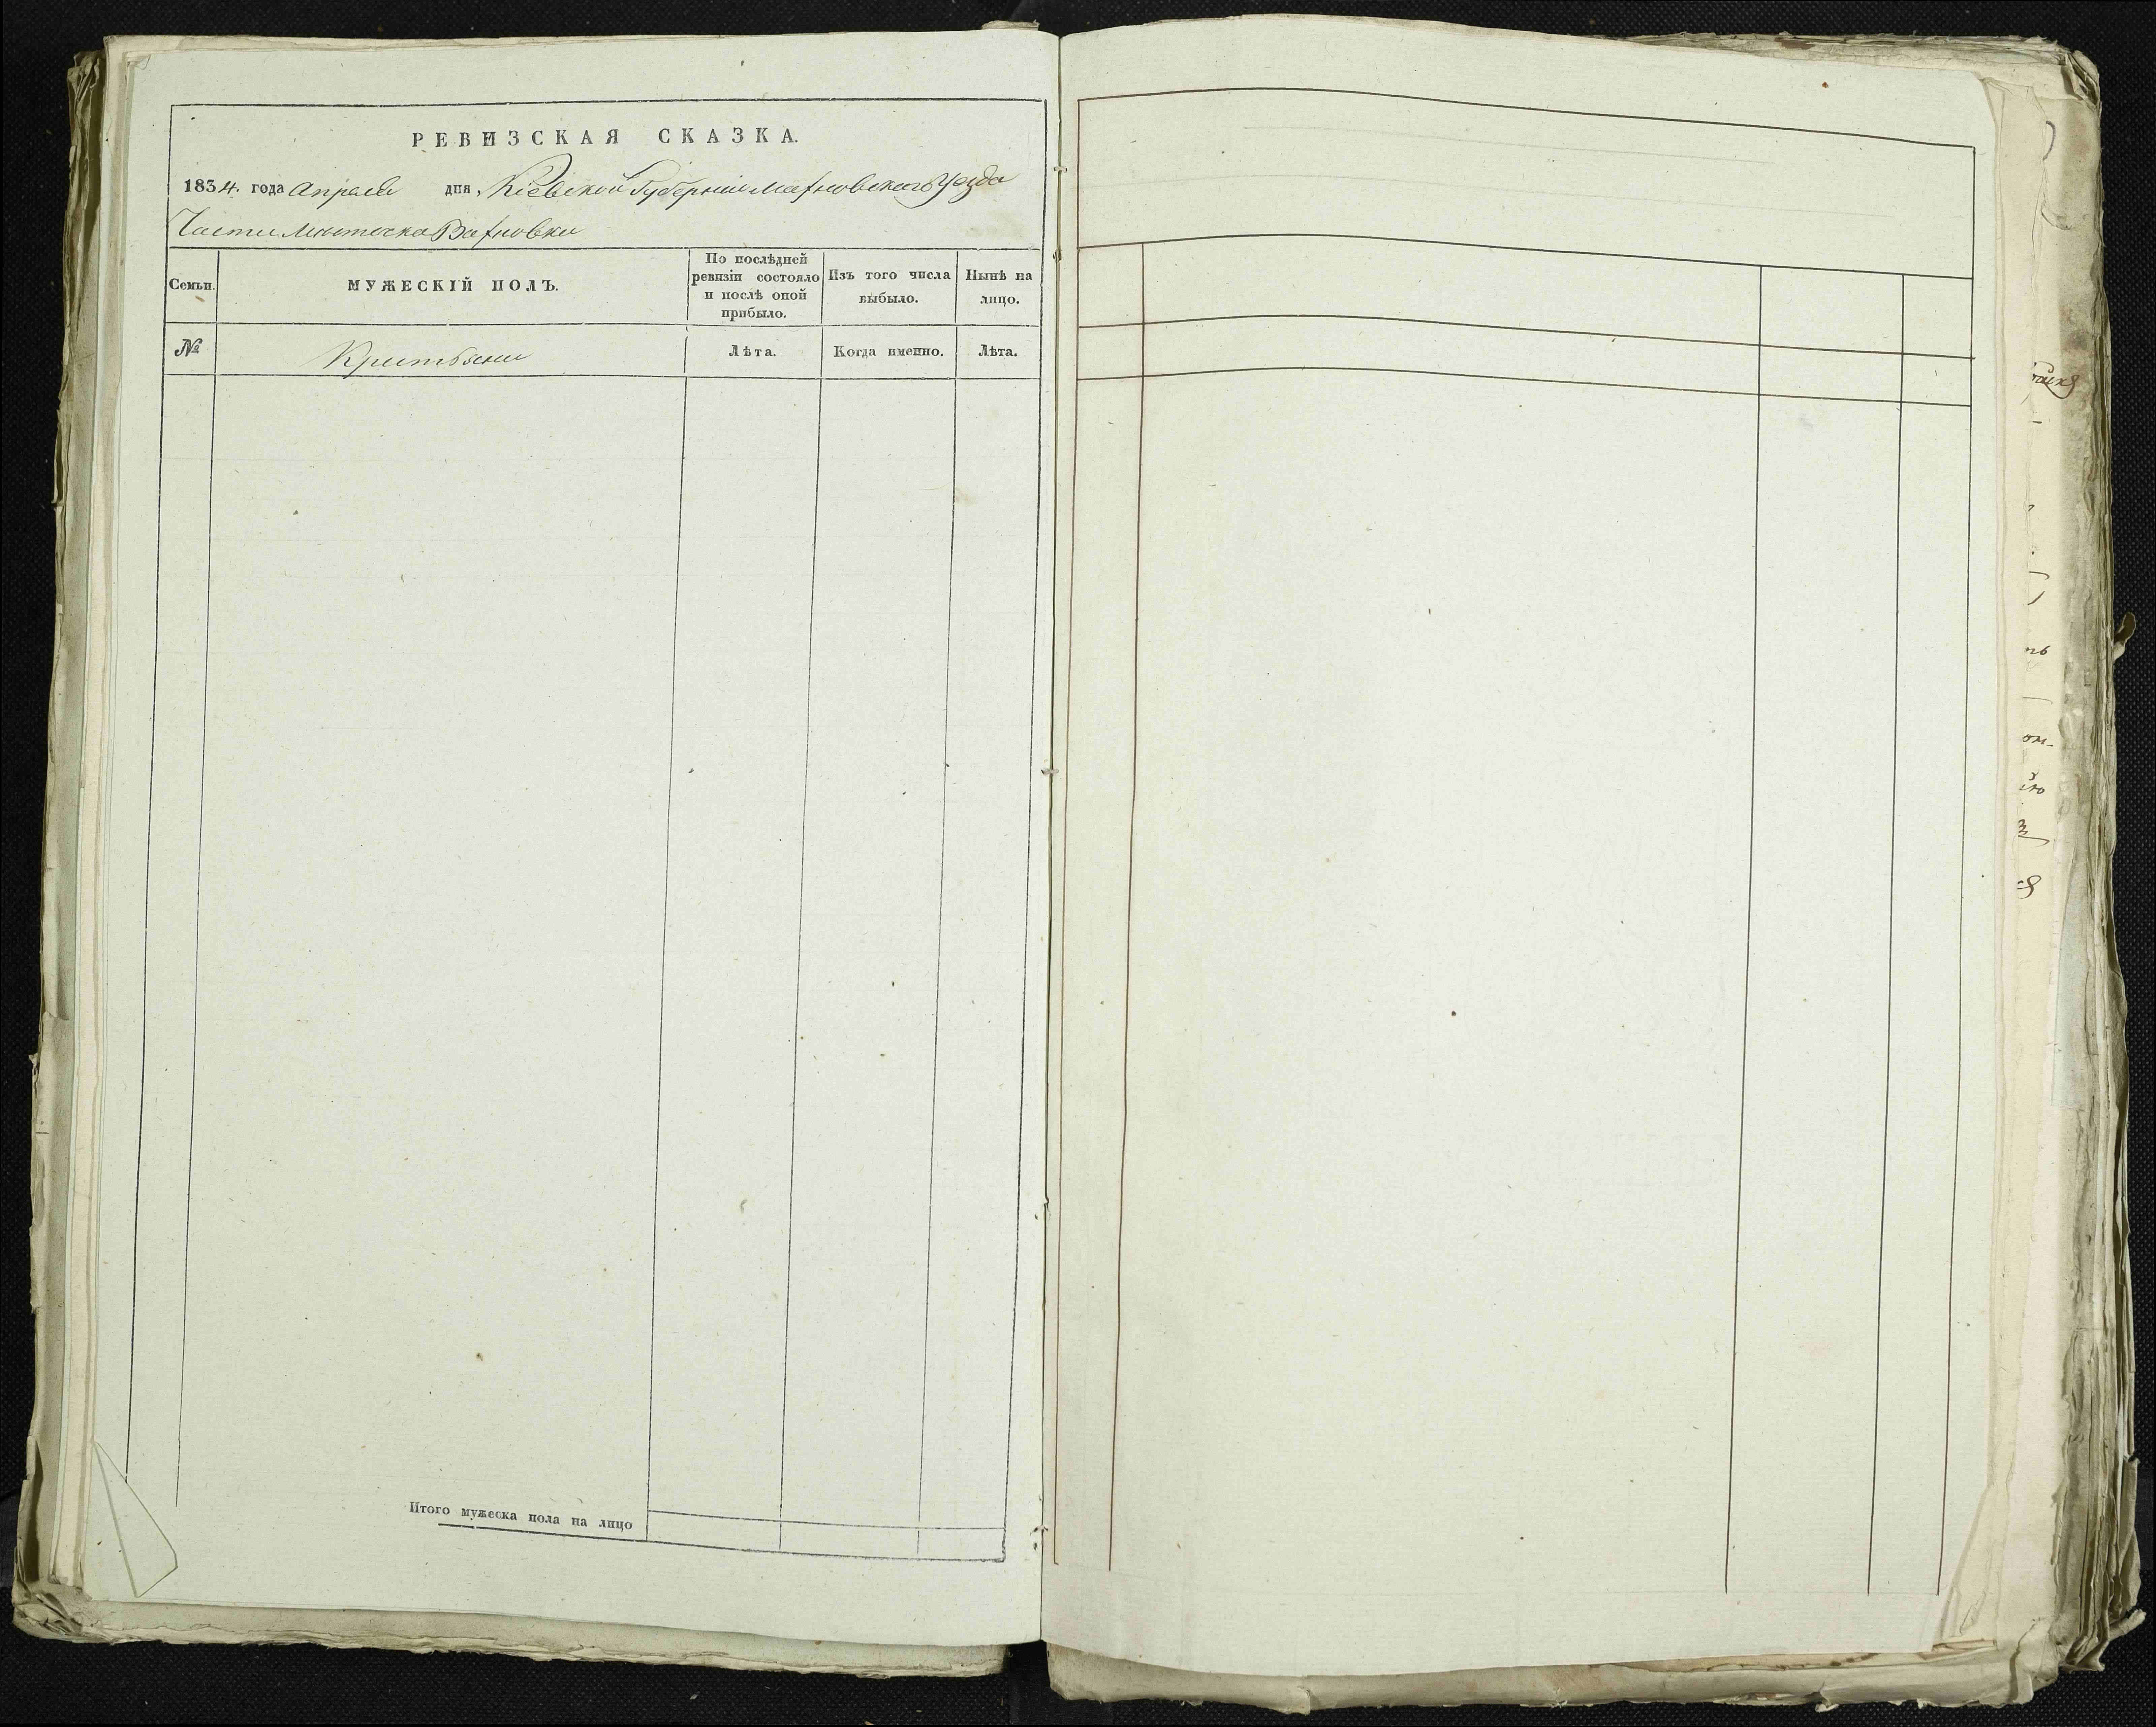 РЕВИЗСКАЯ СКАЗКА.
1834. года Апреля дня, Кіевской Губерніи Махновского Уезда
Части Местечка Вахновки
Семьи.
МУЖЕСКІЙ ПОЛЪ.
По послѣдней
ревизіи состояло
и послѣ оной
прибыло.
Изъ того числа
выбыло.
Нынѣ на
лицо.
№
Лѣта.
Когда именно.
Лѣта.
Итого мужеска пола на лицо